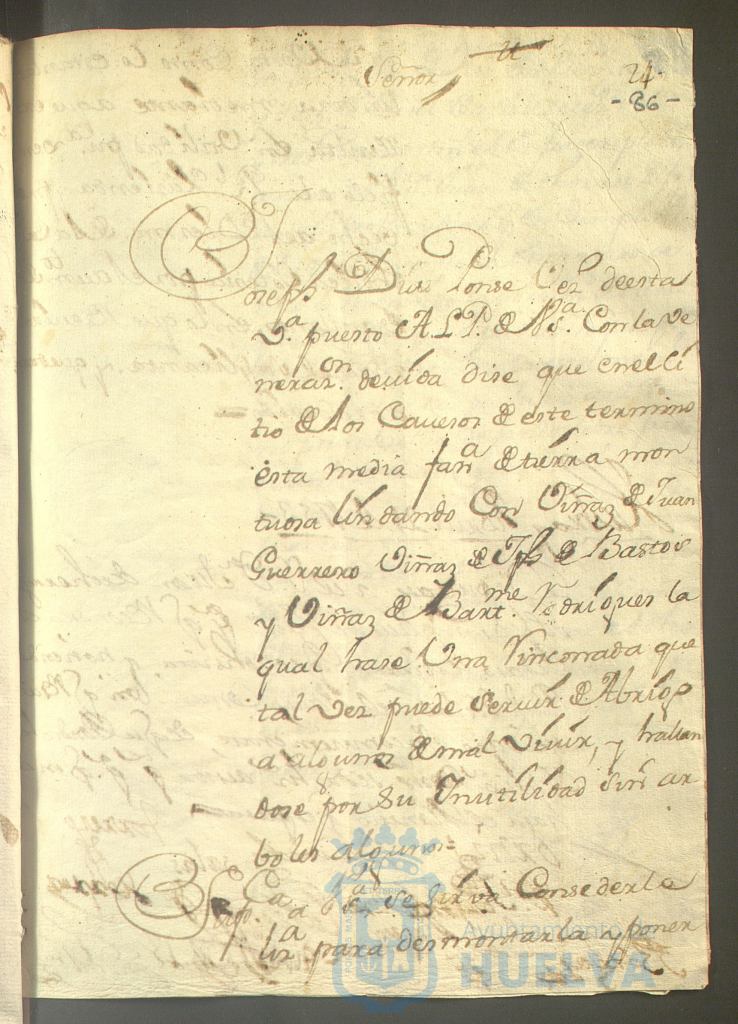 Señor
24
- 86 -
Joseph Luis Ponse vez.º de esta
v.ª puesto A L P. de V s.ª Con la ve
neraz.on devida dise que en el çi
tio de los Caveson de este termino
esta media fan.ª de tierra mon
tuosa lindando Con Viñaz de Juan
Guerrero Viñaz de Jph de Bastos
y Viñaz de Bart.me Rodrigues la
qual hase Una Rinconada que
tal vez puede Servir de Abrigo
a algunos de mal vivir, y hallan
dose por su Inutilidad sin ar
boles algunos=
Supp.ca a V s.ª se sirva Consederle
liz.ª para desmontarla y poner
Ayuntamiento
HUELVA